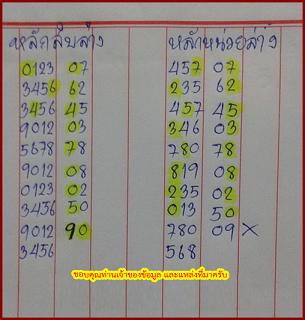 หลักสิบล่าง หลักหน่วยล่าง
0123 07 457 07
3456 62 235 62
3456 45 457 45
9012 03 346 03
5678 78 780 78
9012 08 819 08
0123 02 235 02
3456 50 013 50
9012 90 780 09 ×
3456 568
ขอบคุณท่านเจ้าของข้อมูล และแหล่งที่มาครับ